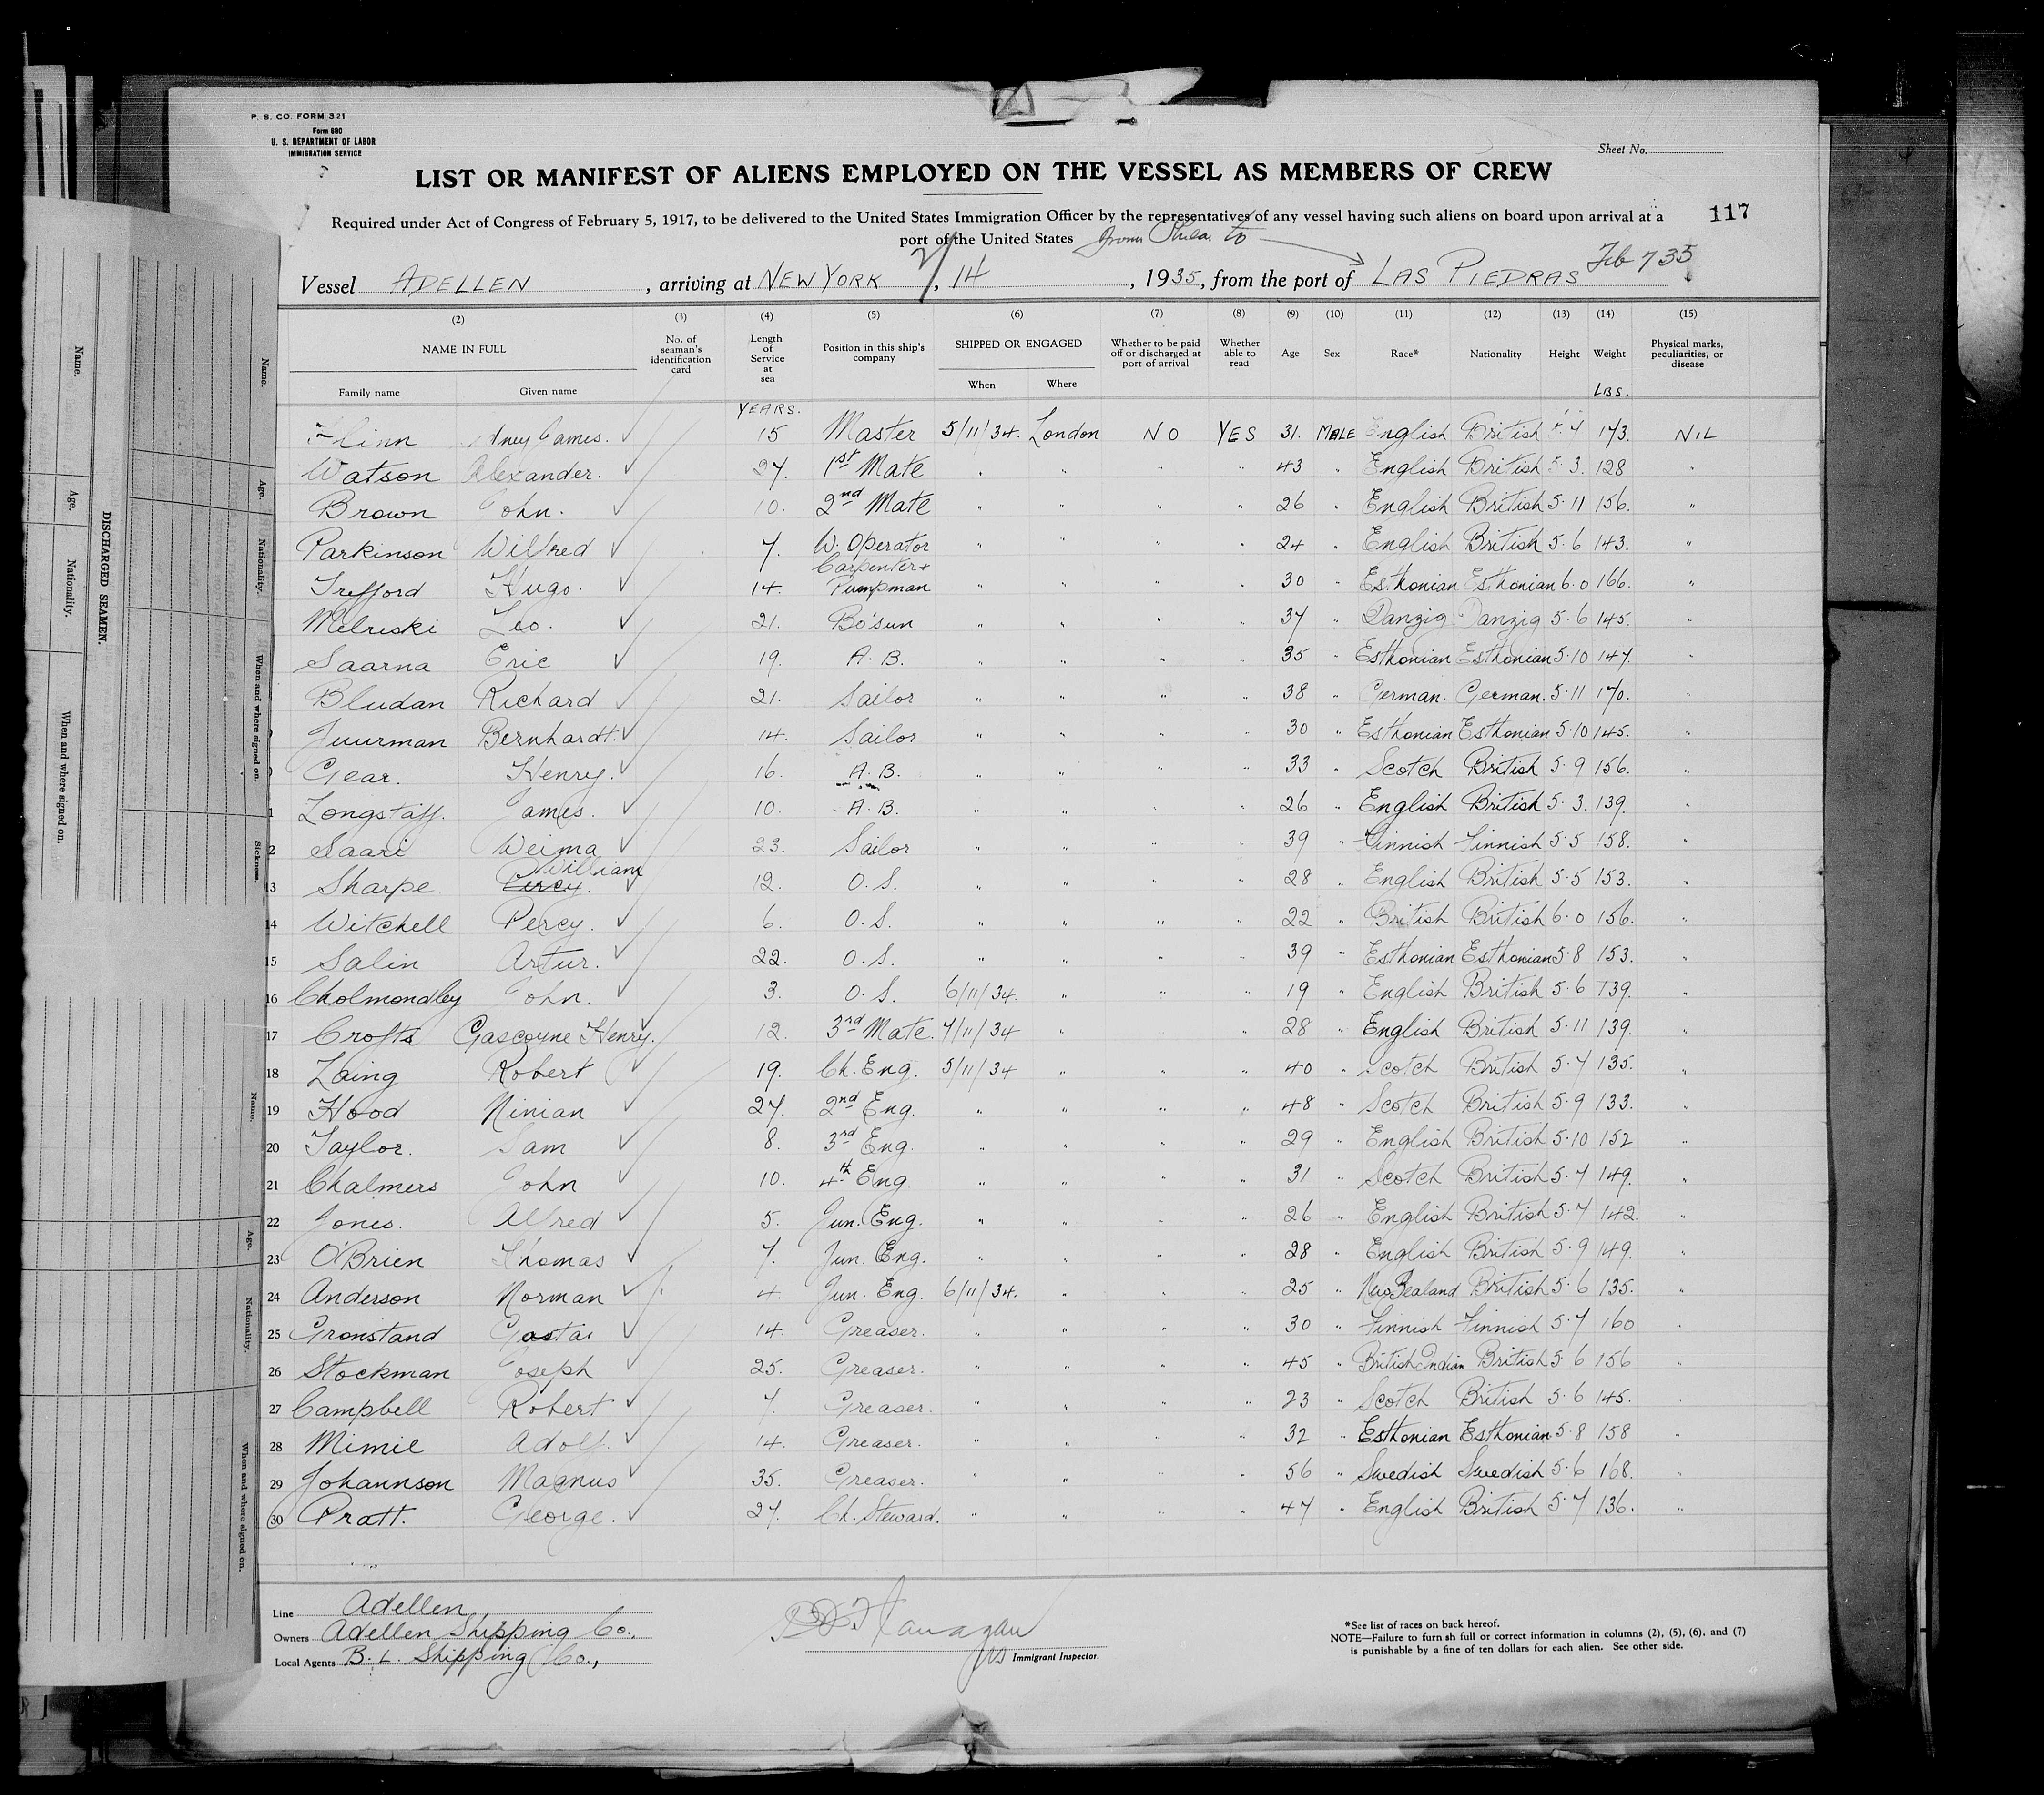 P. S. CO. FORM 321
Form 680
U. S. DEPARTMENT OF LABOR
IMMIGRATION SERVICE
Sheet No.
LIST OR MANIFEST OF ALIENS EMPLOYED ON THE VESSEL AS MEMBERS OF CREW
Required under Act of Congress of February 5, 1917, to be delivered to the United States Immigration Officer by the representatives of any vessel having such aliens on board upon arrival at a
port of the United States from Phila. to
117
Vessel ADELLEN, arriving at NEW YORK 2/14, 1935, from the port of LAS PIEDRAS Feb 7 35
(2) (3) (4) (5) (6) (7) (8) (9) (10) (11) (12) (13) (14) (15)
NAME IN FULL Family name Given name No. of seaman's identification card Length of Service at sea Position in this ship's company SHIPPED OR ENGAGED When Where Whether to be paid off or discharged at port of arrival Whether able to read Age Sex Race* Nationality Height Weight Physical marks, peculiarities, or disease
YEARS. LBS.
dney James. ✓ 15 Master 5/11/34. London NO YES 31. MALE English British 173. NIL
Watson Alexander. ✓ 27. 1st Mate " " " " 43 " English British 5.3. 128 "
Brown John. ✓ 10. 2nd Mate " " " " 26 " English British 5.11 156. "
Parkinson Wilfred ✓ 7. W. Operator " " " " 24 " English British 5.6 143. "
Trefford Hugo. ✓ 14. Carpenter + Pumpman " " " " 30 " Esthonian Esthonian 6.0 166. "
Melruski Leo. ✓ 21. Bo'sun " " " " 37 " Danzig Danzig 5.6 145. "
Saarna Eric ✓ 19. A.B. " " " " 35 " Esthonian Esthonian 5.10 147. "
Bludan Richard ✓ 21. Sailor " " " " 38 " German. German. 5.11 170. "
Juurman Bernhardt. ✓ 14. Sailor " " " " 30 " Esthonian Esthonian 5.10 145. "
Gear. Henry. ✓ 16. A.B. " " " " 33 " Scotch British 5.9 156. "
1 Longstaff. James. ✓ 10. A.B. " " " " 26 " English British 5.3. 139. "
2 Saari Weima ✓ 23. Sailor " " " " 39 " Finnish Finnish 5.5 158. "
13 Sharpe Percy. William ✓ 12. O.S. " " " " 28 " English British 5.5 153. "
14 Witchell Percy. ✓ 6. O.S. " " " " 22 " British British 6.0 156. "
15 Salin Artur. ✓ 22. O.S. " " " " 39 " Esthonian Esthonian 5.8 153. "
16 Cholmondley John. ✓ 3. O.S. 6/11/34. " " " 19 " English British 5.6 139. "
17 Crofts Gascoyne Henry. ✓ 12. 3rd Mate. 7/11/34 " " 28 " English British 5.11 139. "
18 Laing Robert ✓ 19. Ch. Eng. 5/11/34 " " " 40 " Scotch British 5.7 135. "
19 Hood Ninian ✓ 27. 2nd Eng. " " " " 48 " Scotch British 5.9 133. "
20 Taylor. Sam ✓ 8. 3rd Eng. " " " " 29 " English British 5.10 152 "
21 Chalmers John ✓ 10. 4th Eng. " " " " 31 " Scotch British 5.7 149. "
22 Jones. Alfred ✓ 5. Jun. Eng. " " " " 26 " English British 5.7 142. "
23 O'Brien Thomas ✓ 7. Jun. Eng. " " " " 28 " English British 5.9 149. "
24 Anderson Norman ✓ 4. Jun. Eng. 6/11/34. " " " 25 " New Zealand British 5.6 135. "
25 Gronstand ✓ 14. Greaser. " " " " 30 " Finnish Finnish 5.7 160 "
26 Stockman Joseph ✓ 25. Greaser. " " " " 45 " British Indian British 5.6 156 "
27 Campbell Robert ✓ 7. Greaser. " " " " 23 " Scotch British 5.6 145. "
28 Mimie Adolf. ✓ 14. Greaser. " " " " 32 " Esthonian Esthonian 5.8 158 "
29 Johannson Magnus ✓ 35. Greaser. " " " " 56 " Swedish Swedish 5.6 168. "
30 Pratt. George. ✓ 27. Ch. Steward. " " " " 47 " English British 5.7 136. "
Line Adellen
Owners Adellen Shipping Co.,
Local Agents B. L. Shipping Co.,
Immigrant Inspector.
*See list of races on back hereof.
NOTE—Failure to furn sh full or correct information in columns (2), (5), (6), and (7)
is punishable by a fine of ten dollars for each alien. See other side.
DISCHARGED SEAMEN.
Name. Age. Nationality. When and where signed on.
Name. Age. Nationality. When and where signed on. Sickness.
Name. Age. Nationality. When and where signed on.